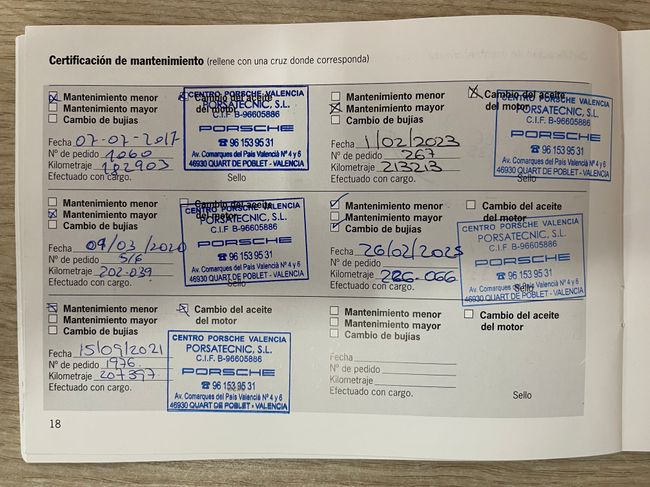 Certificación de mantenimiento (rellene con una cruz donde corresponda)
Mantenimiento menor
Mantenimiento mayor
Cambio de bujias
Cambio del aceite
CENTRO PORSCHE VALENCIA
PORSATECNIC, S.L.
C.I.F. B-96605886
PORSCHE
☎ 96 153 95 31
Av. Comarques del País Valencià Nº 4 y 6
46930 QUART DE POBLET - VALENCIA
Fecha 07-07-2017
Nº de pedido 1060
Kilometraje 182903
Efectuado con cargo.
Sello
Mantenimiento menor
Mantenimiento mayor
Cambio de bujias
Cambio del aceite
del motor
CENTRO PORSCHE VALENCIA
PORSATECNIC, S.L.
C.I.F. B-96605886
PORSCHE
☎ 96 153 95 31
Av. Comarques del País Valencià Nº 4 y 6
46930 QUART DE POBLET - VALENCIA
Fecha 1/02/2023
Nº de pedido 267
Kilometraje 213213
Efectuado con cargo.
Sello
Mantenimiento menor
Mantenimiento mayor
Cambio de bujias
Cambio del aceite
del motor
CENTRO PORSCHE VALENCIA
PORSATECNIC, S.L.
C.I.F. B-96605886
PORSCHE
☎ 96 153 95 31
Av. Comarques del País Valencià Nº 4 y 6
46930 QUART DE POBLET - VALENCIA
Fecha 09/03/2020
Nº de pedido
Kilometraje 202-039
Efectuado con cargo.
Sello
Mantenimiento menor
Mantenimiento mayor
Cambio de bujias
Cambio del aceite
del motor
CENTRO PORSCHE VALENCIA
PORSATECNIC, S.L.
C.I.F. B-96605886
PORSCHE
☎ 96 153 95 31
Av. Comarques del País Valencià Nº 4 y 6
46930 QUART DE POBLET - VALENCIA
Fecha 26/02/2025
Nº de pedido
Kilometraje 226-066
Efectuado con cargo.
Sello
Mantenimiento menor
Mantenimiento mayor
Cambio de bujias
Cambio del aceite
del motor
CENTRO PORSCHE VALENCIA
PORSATECNIC, S.L.
C.I.F. B-96605886
PORSCHE
☎ 96 153 95 31
Av. Comarques del País Valencià Nº 4 y 6
46930 QUART DE POBLET - VALENCIA
Fecha 15/09/2021
Nº de pedido 1976
Kilometraje 207397
Efectuado con cargo.
Mantenimiento menor
Mantenimiento mayor
Cambio de bujias
Cambio del aceite
del motor
Fecha
Nº de pedido
Kilometraje
Efectuado con cargo.
Sello
18